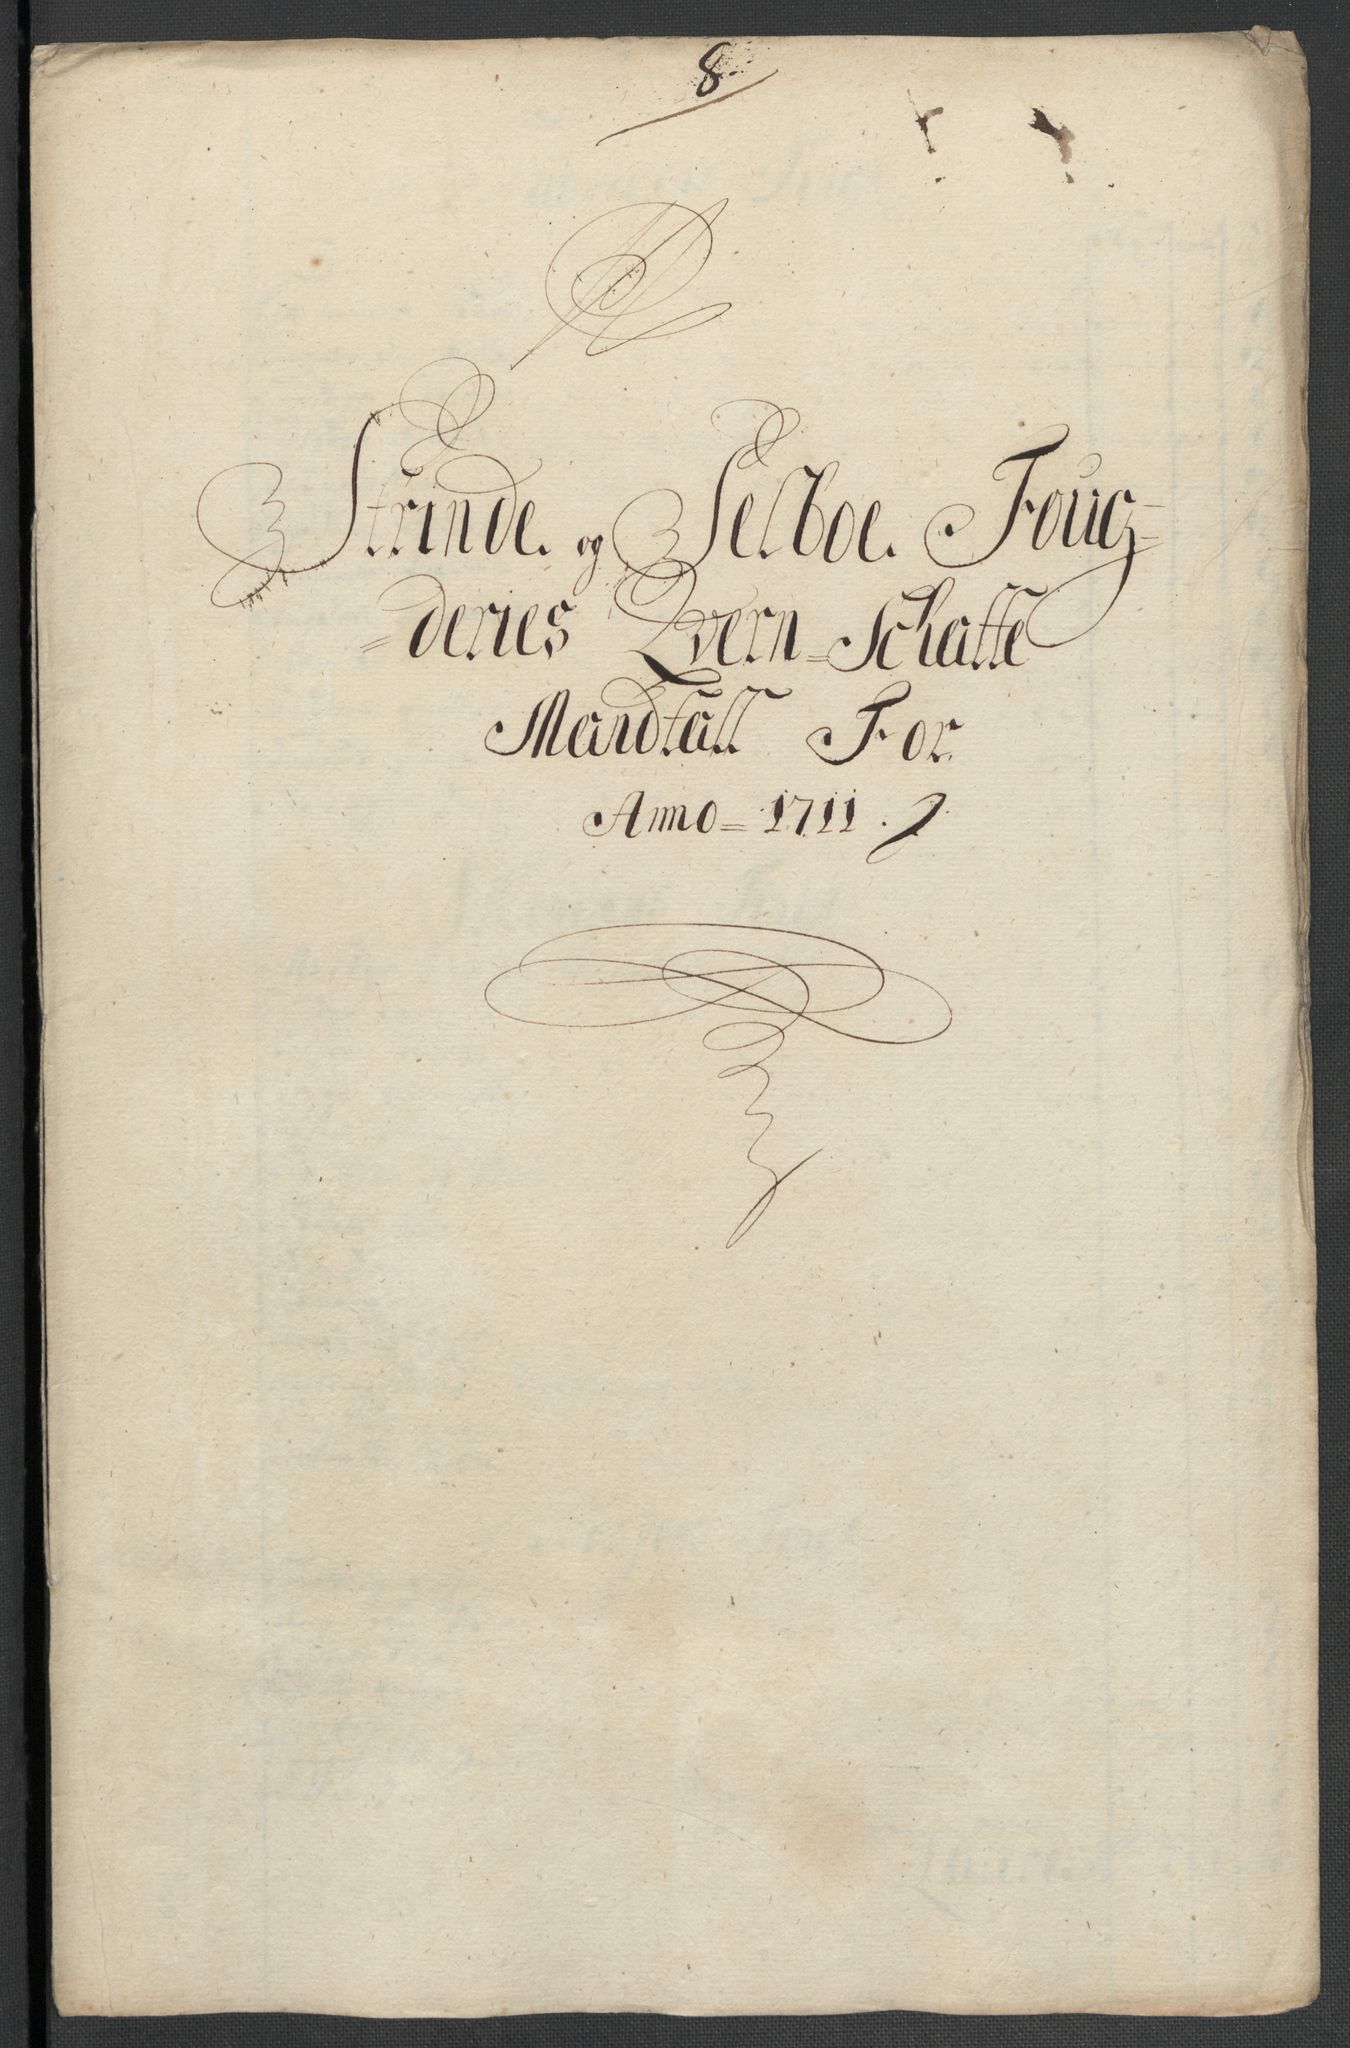 8
Strinde og Selboe Foug=
=deries Qvern=Schatte
Mandtall For
Anno=1711.